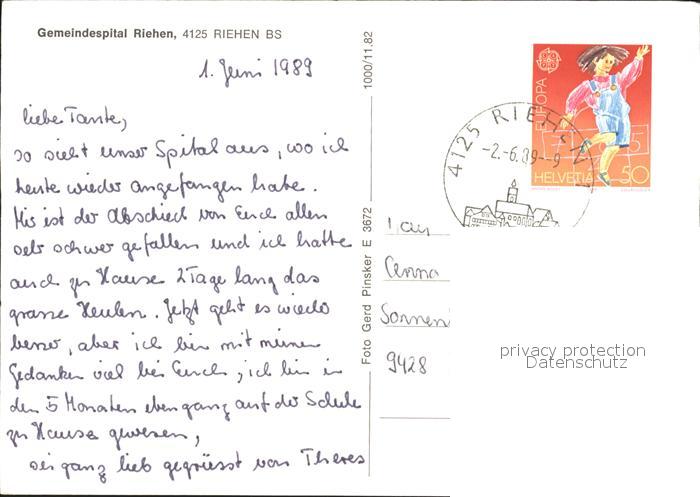 Gemeindespital Riehen, 4125 RIEHEN BS
1. Juni 1989
liebe Tante,
so sieht unser Spital aus, wo ich
heute wieder angefangen habe.
Mir ist der Abschied von Euch allen
sehr schwer gefallen und ich hatte
auch zu Hause 2 Tage lang das
grosse Heulen. Jetzt geht es wieder
besser, aber ich bin mit meinen
Gedanken viel bei Euch, ich bin in
den 5 Monaten eben ganz auf der Schule
zu Hause gewesen,
sei ganz lieb gegrüsst von Theres
1000/11.82
Foto Gerd Pinsker E 3672
4125 RIEHEN 1
-2.-6.89--9
EUROPA
HELVETIA 50
Frau
Anna
Sonnen
9428
privacy protection
Datenschutz